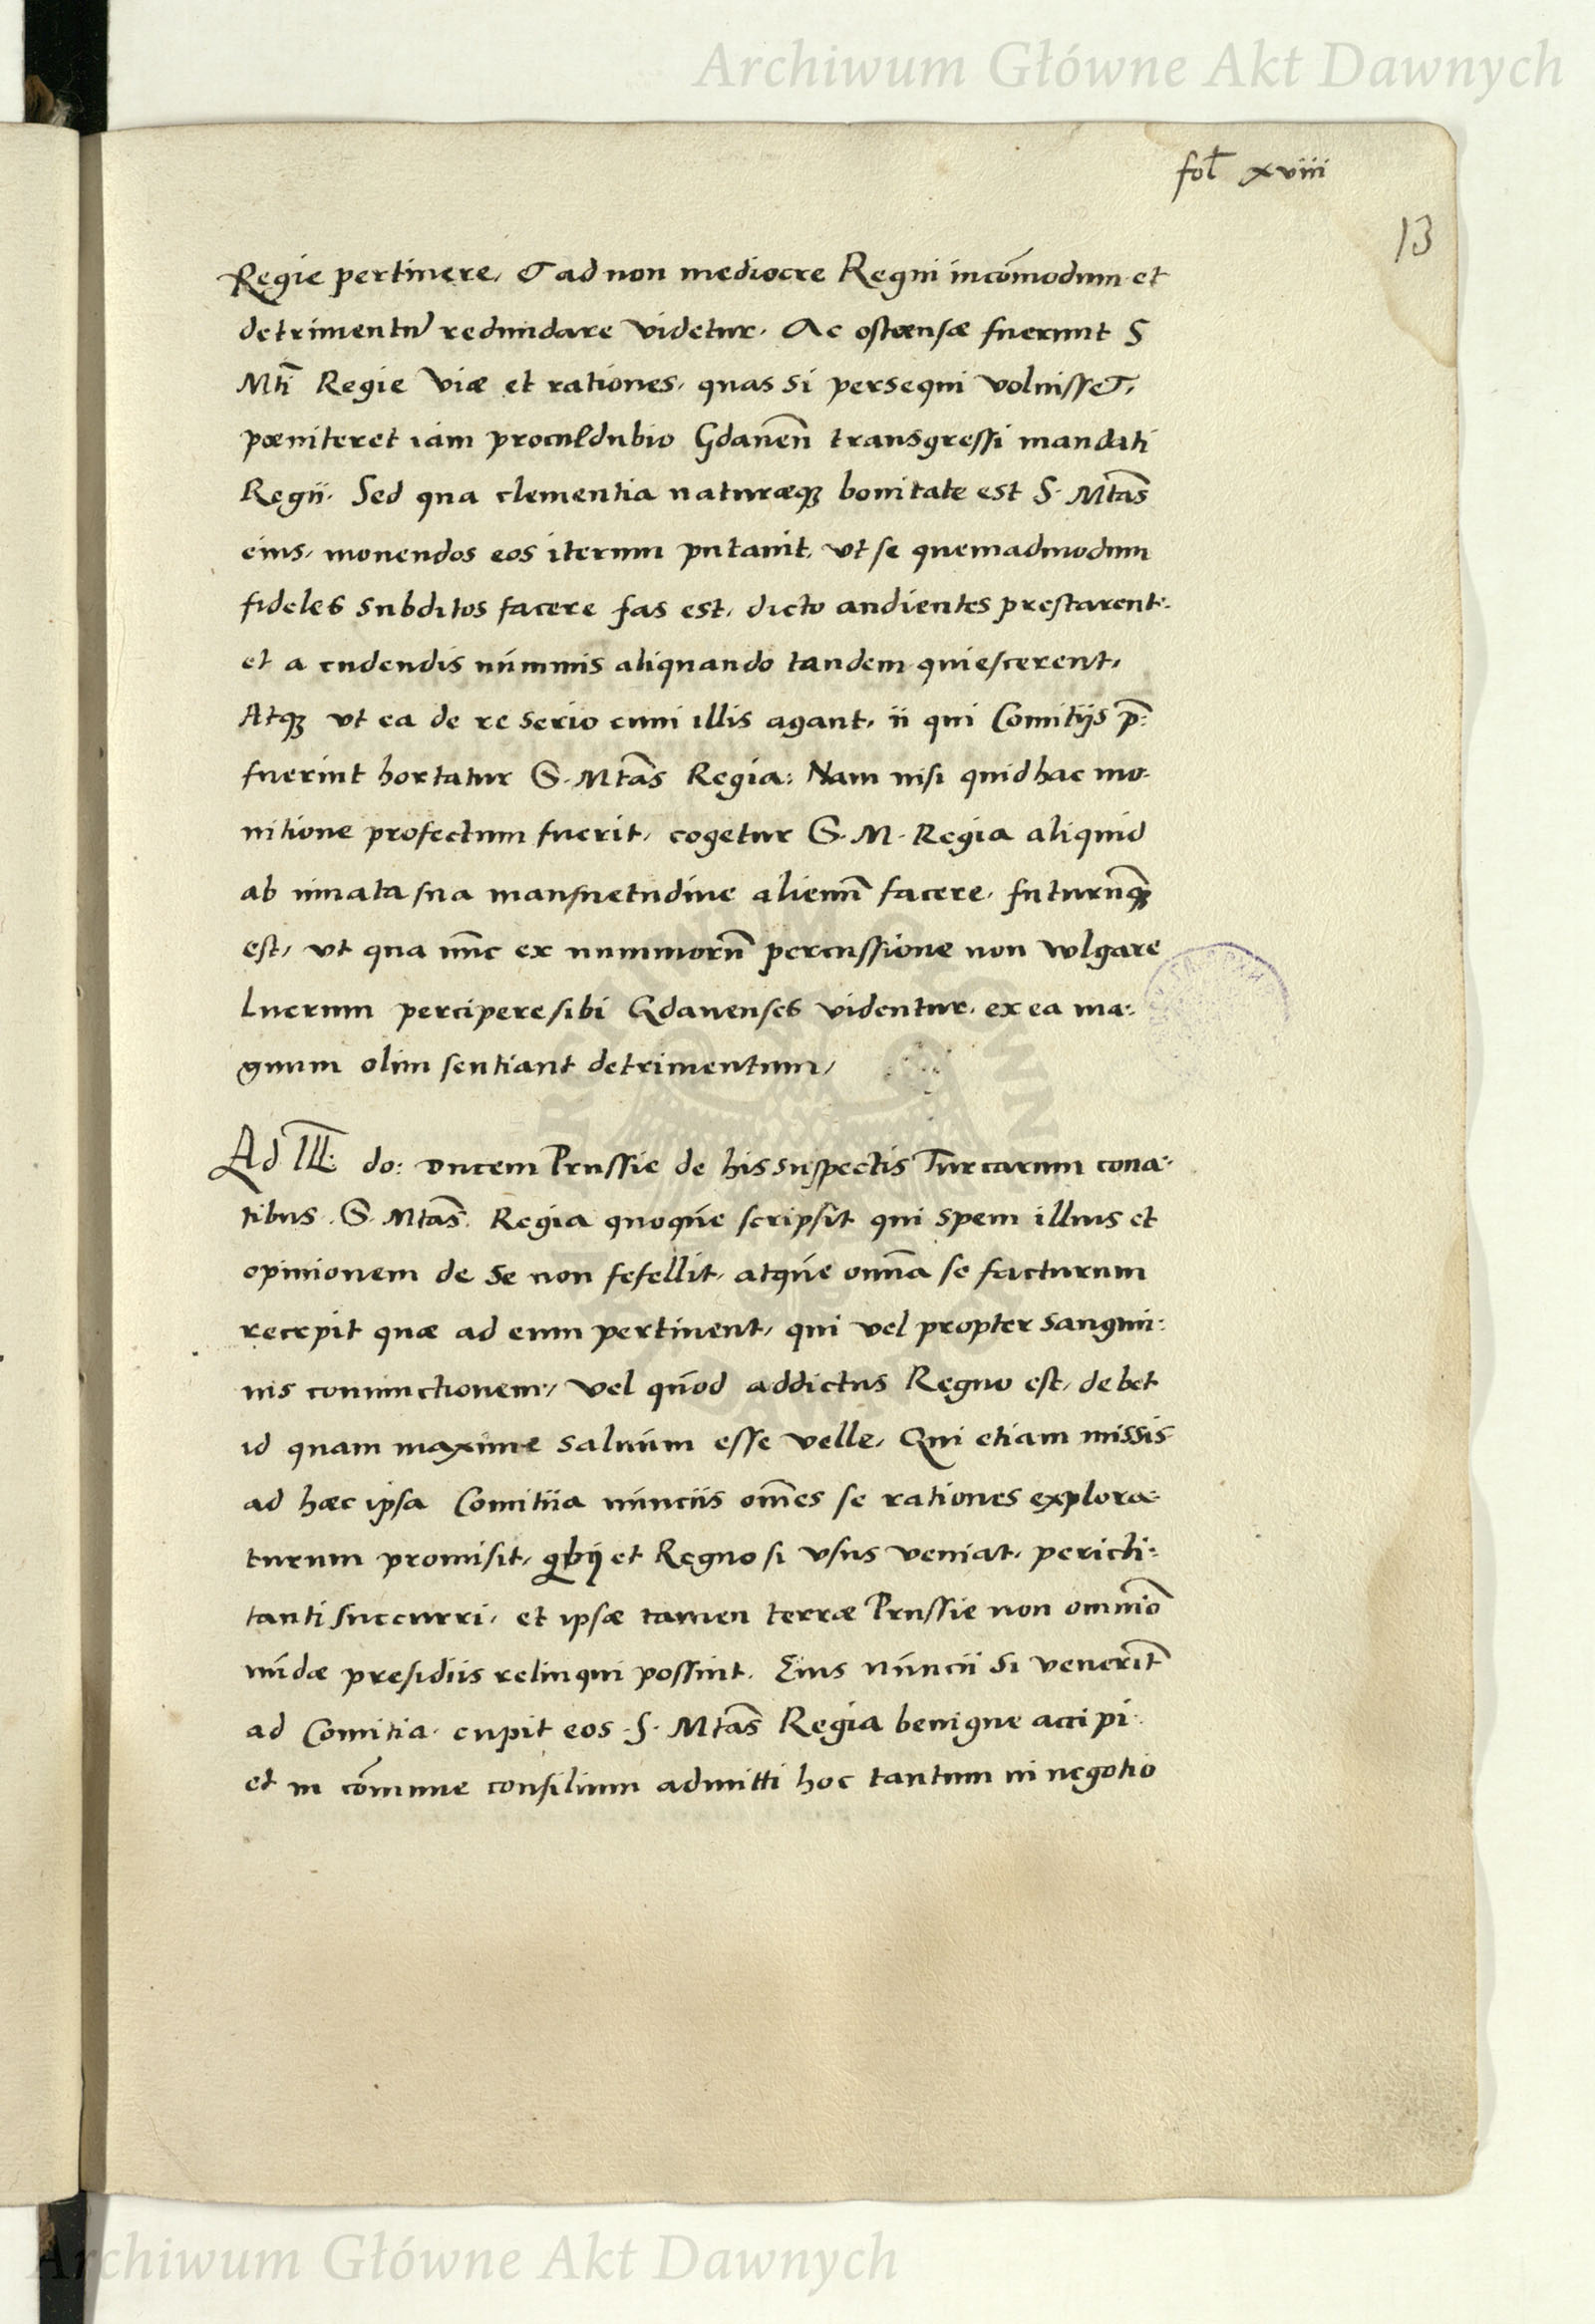 Archiwum Główne Akt Dawnych
fol xviii
13
Regie pertinere, et ad non mediocre Regni incōmodum et
detrimentū redundare videtur. Ac ostensæ fuerunt S
Mti Regie viæ et rationes, quas si persequi voluisset,
pœniteret iam proculdubio Gdaneñ transgressi mandati
Regii. Sed qua clementia naturæq₃ bonitate est S. Mtās
eius, monendos eos iterum putauit, vt se quemadmodum
fideles subditos facere fas est, dicto audientes prestarent:
et a cudendis nummis aliquando tandem quiescerent,
Atq₃ vt ea de re serio cum illis agant, ii qui Comitijs p̄:
fuerint hortatur S. Mtās Regia: Nam nisi quid hac mo-
nitione profectum fuerit, cogetur S. M. Regia aliquid
ab innata sua mansuetudine alienū facere, futurūq₃
est, vt qua nūc ex nummorū percussione non vulgare
Lucrum percipere sibi Gdanenses videntur, ex ea ma:
gnum olim sentiant detrimentum,
Ad Ill: do: ducem Prussie de his suspectis Turcarum cona:
tibus S. Mtās. Regia quoque scripsit qui spem illius et
opinionem de se non fefellit, atque omīa se facturum
recepit quæ ad eum pertinent, qui vel propter sangui:
nis coniunctionem, vel quod addictus Regno est, debet
id quam maxime saluum esse velle, Qui etiam missis
ad hæc ipsa Comitiia nunciis omēs se rationes explora:
turum promisit, qbȷ et Regno si vsus veniat, pericli:
tanti succurri, et ipsæ tamen terræ Prussie non omnīo
nudæ presidiis relinqui possint. Eius nuncii si venerīt
ad Comitia, cupit eos S. Mtās Regia benigne accipi.
et in cōmune consilium admitti hoc tantum in negotio
Archiwum Główne Akt Dawnych